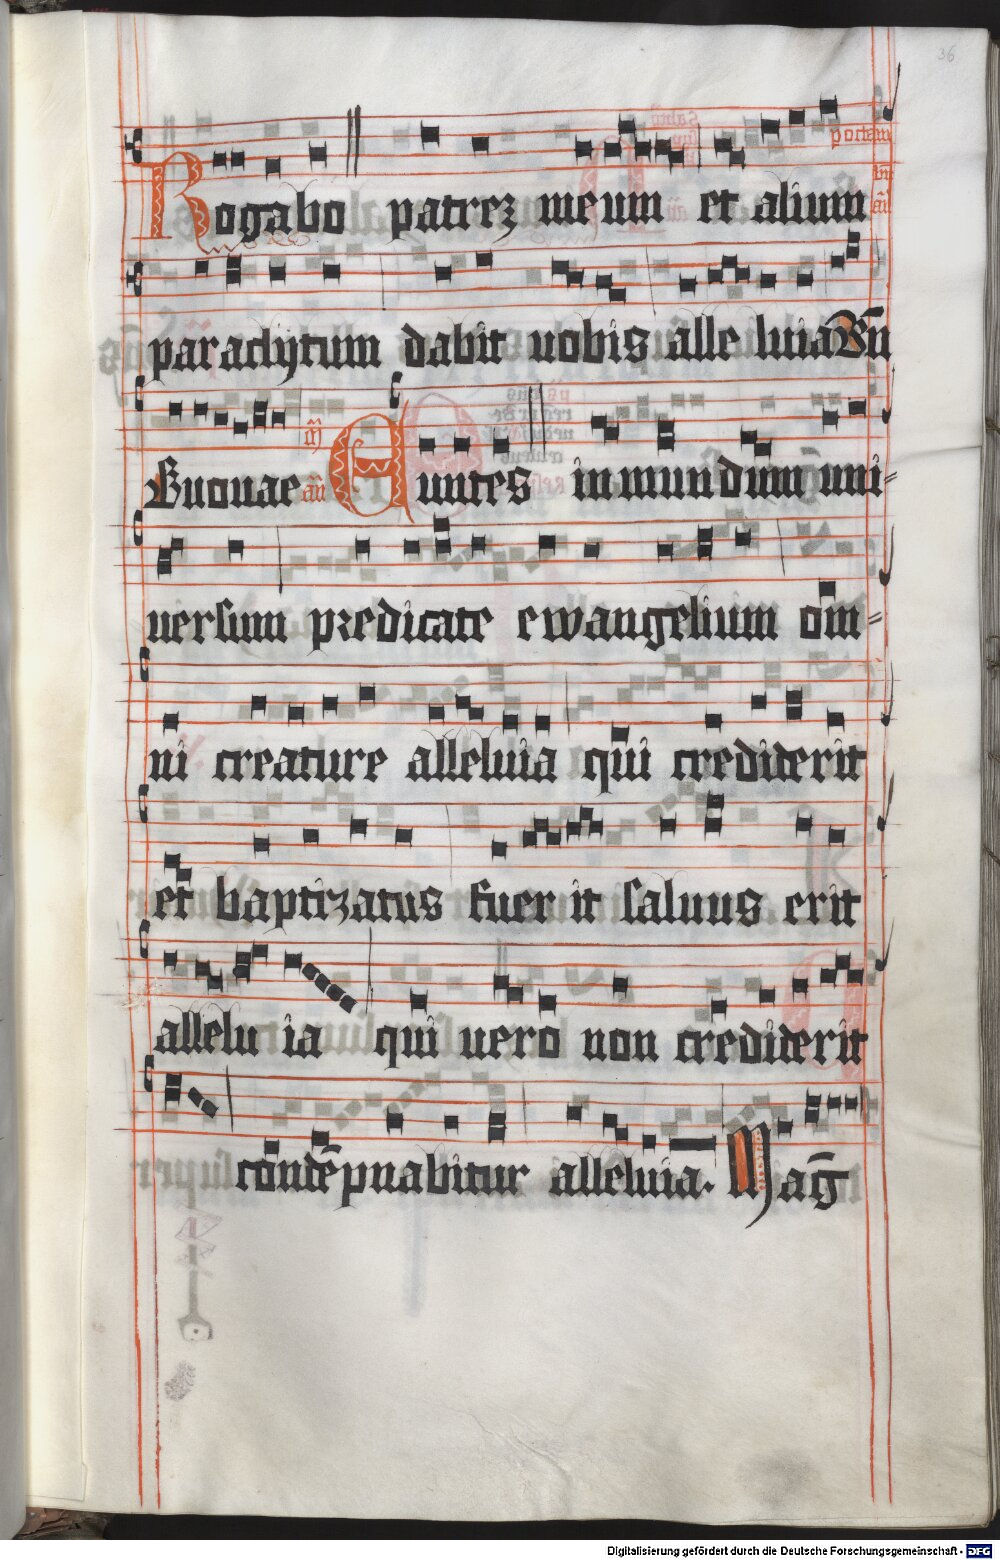 36
portam
Rogabo patrez meum et alium
in
añ
paraclytum dabit uobis alle luia Bñ
Euouae añ Euntes in mundum uni=
uersum predicate ewangelium om=
ni creature alleluia qui crediderit
et baptizatus fuer it saluus erit
allelu ia qui uero non crediderit
condēpnabitur alleluia. Mag̅
Digitalisierung gefördert durch die Deutsche Forschungsgemeinschaft - DFG